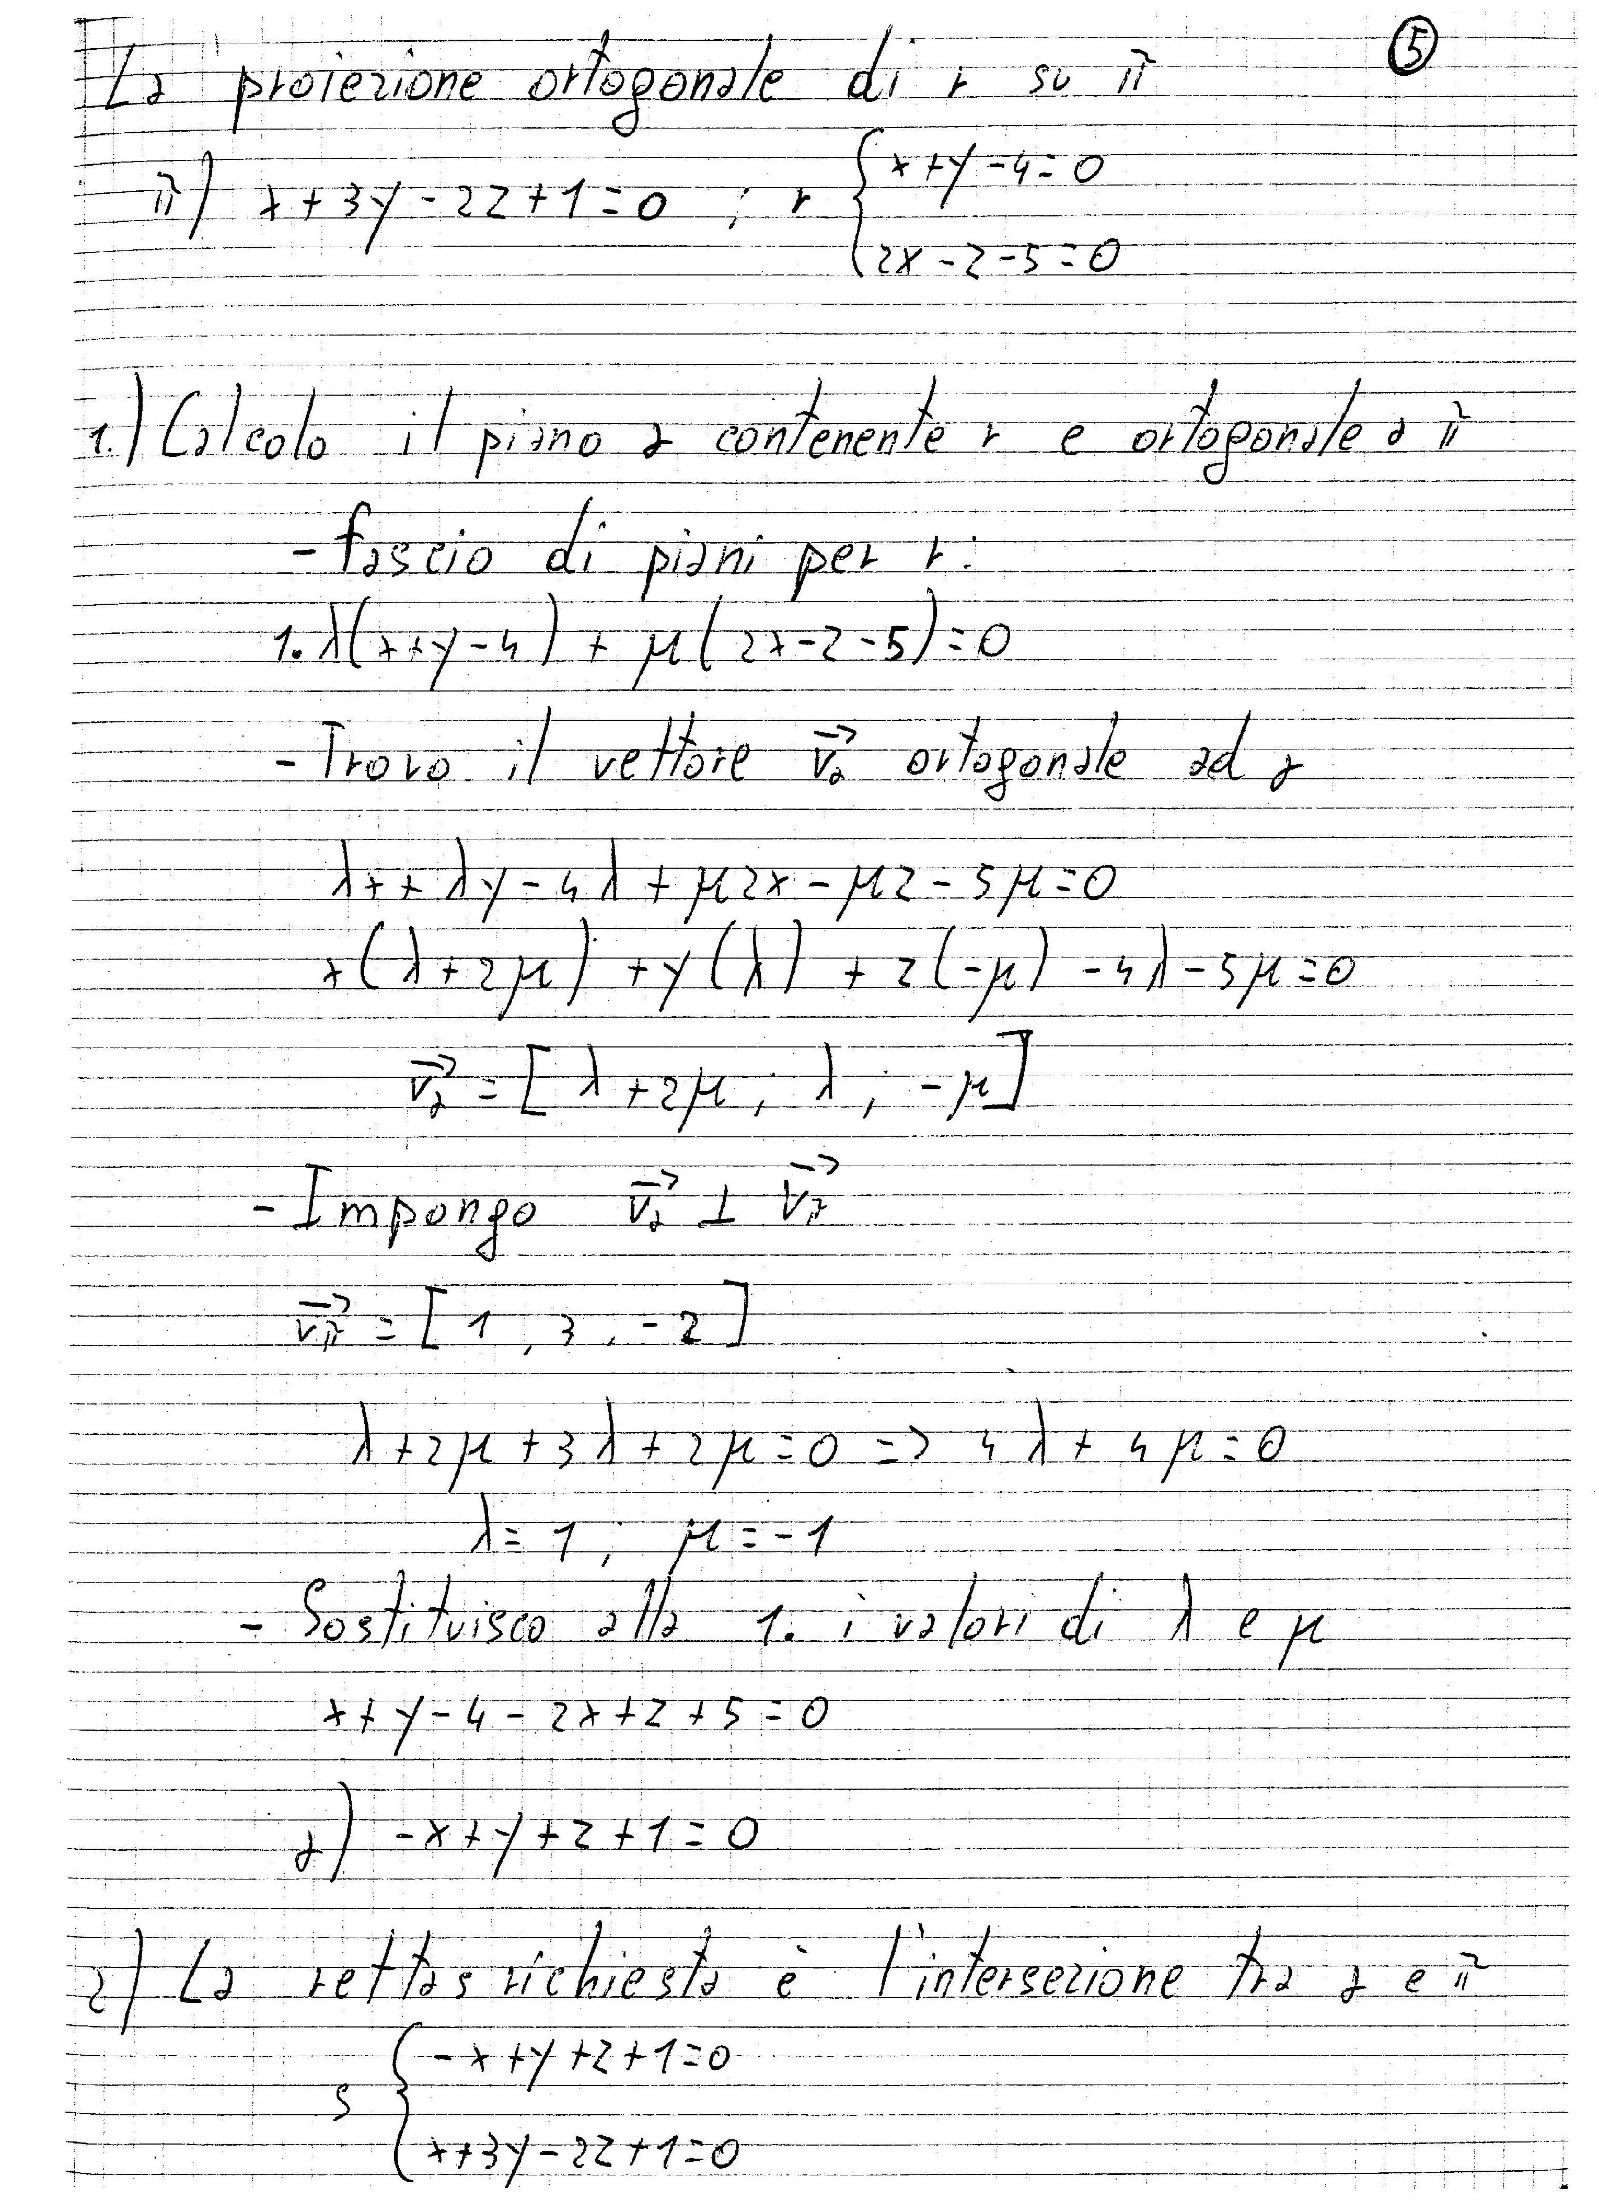 La proiezione ortogonale di r su π ⑤
π) x+3y-2z+1=0 ; r { x+y-4=0
2x-z-5=0
1.) Calcolo il piano α contenente r e ortogonale a π
- fascio di piani per r:
1. λ(x+y-4) + μ(2x-z-5)=0
- Trovo il vettore v⃗α ortogonale ad α
λx+λy-4λ+μ2x-μz-5μ=0
x(λ+2μ)+y(λ)+z(-μ)-4λ-5μ=0
v⃗α = [λ+2μ; λ; -μ]
- Impongo v⃗α ⊥ v⃗π
v⃗π = [1, 3, -2]
λ+2μ+3λ+2μ=0 => 4λ+4μ=0
λ=1; μ=-1
- Sostituisco alla 1. i valori di λ e μ
x+y-4-2x+z+5=0
α) -x+y+z+1=0
2) La retta s richiesta è l'intersezione tra α e π
s { -x+y+z+1=0
x+3y-2z+1=0